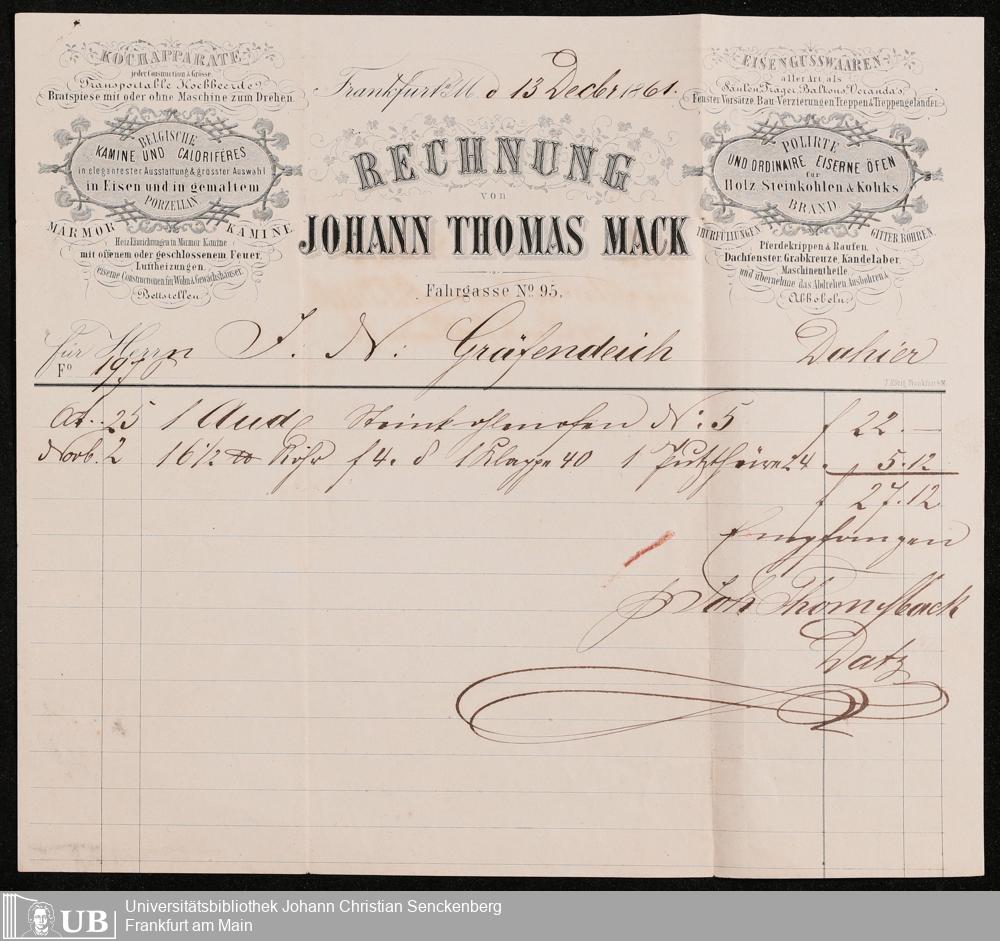 KOCHAPPARATE
jeder Construction & Grösse.
Transportable Kochheerde
Bratspiese mit oder ohne Maschine zum Drehen.
BELGISCHE
KAMINE UND CALORIFÉRES
in elegantester Ausstattung & grösster Auswahl
in Eisen und in gemaltem
PORZELLAN
MARMOR KAMINE
Heiz Einrichtungen in Marmor Kamine
mit offenem oder geschlossenem Feuer,
Luftheizungen,
eiserne Constructionen für Wohn & Gewächshäuser.
Bettstellen.
Frankfurt a/M d 13 Decbr 1861.
RECHNUNG
von
JOHANN THOMAS MACK
Fahrgasse No. 95.
EISENGUSSWAAREN
aller Art als
Säulen Träger Balkons Veranda's
Fenster Vorsätze Bau-Verzierungen Treppen & Treppengeländer
POLIRTE
UND ORDINAIRE EISERNE ÖFEN
für
Holz Steinkohlen & Kohks
BRAND
THÜRFÜLLUNGEN GITTER RÖHREN
Pferdekrippen & Raufen,
Dachfenster, Grabkreuze, Kandelaber,
Maschinentheile
und übernehme das Abdrehen, Ausbohren &
Abhobeln.
für Herrn J. N: Gräfendeich Dahier
Fo 197
25 1 Aud Steinkohlenofen N: 5 f 22.—
Novb. 2 16 1/2 Rohr f 4. 8 1 Klappe 40 1 Putzthüre 24 " 5.12
f 27.12
Empfangen
p Joh Thom Mack
Datz